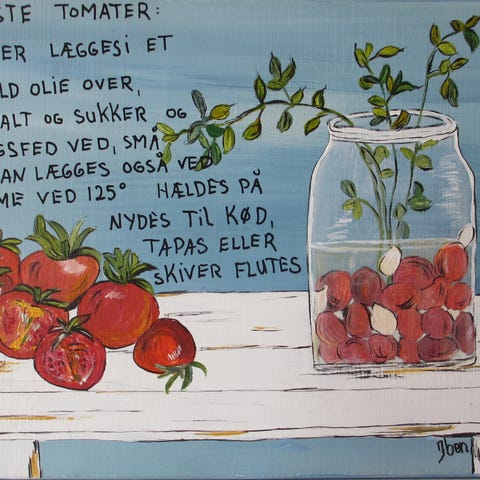 STE TOMATER:
ER LÆGGES I ET
LD OLIE OVER,
ALT OG SUKKER OG
GSFED VED, SMÅ
AN LÆGGES OGSÅ VED
ME VED 125° HÆLDES PÅ
NYDES TIL KØD,
TAPAS ELLER
SKIVER FLUTES